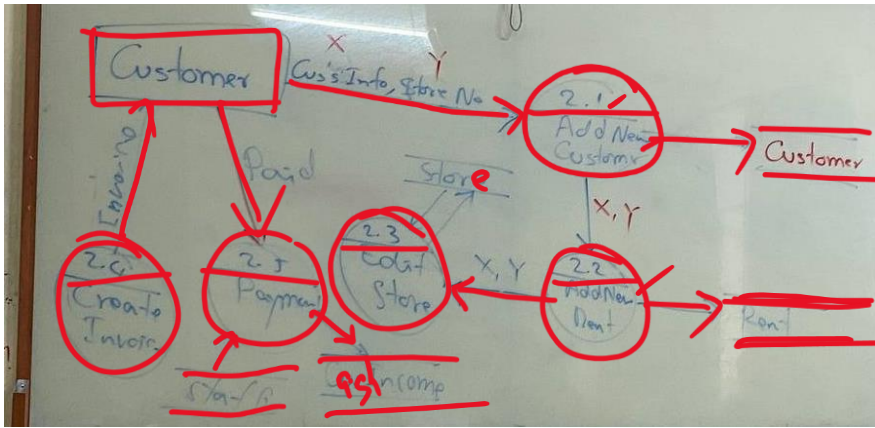 Customer
X
Y
Cus's Info, Store No
2.1
Add New
Customr
Customer
Invoice
Paid
Store
X, Y
2.4
Create
Invoic
2.5
Payment
2.3
Edit
Store
X, Y
2.2
Add New
Rent
Rent
Cash Income